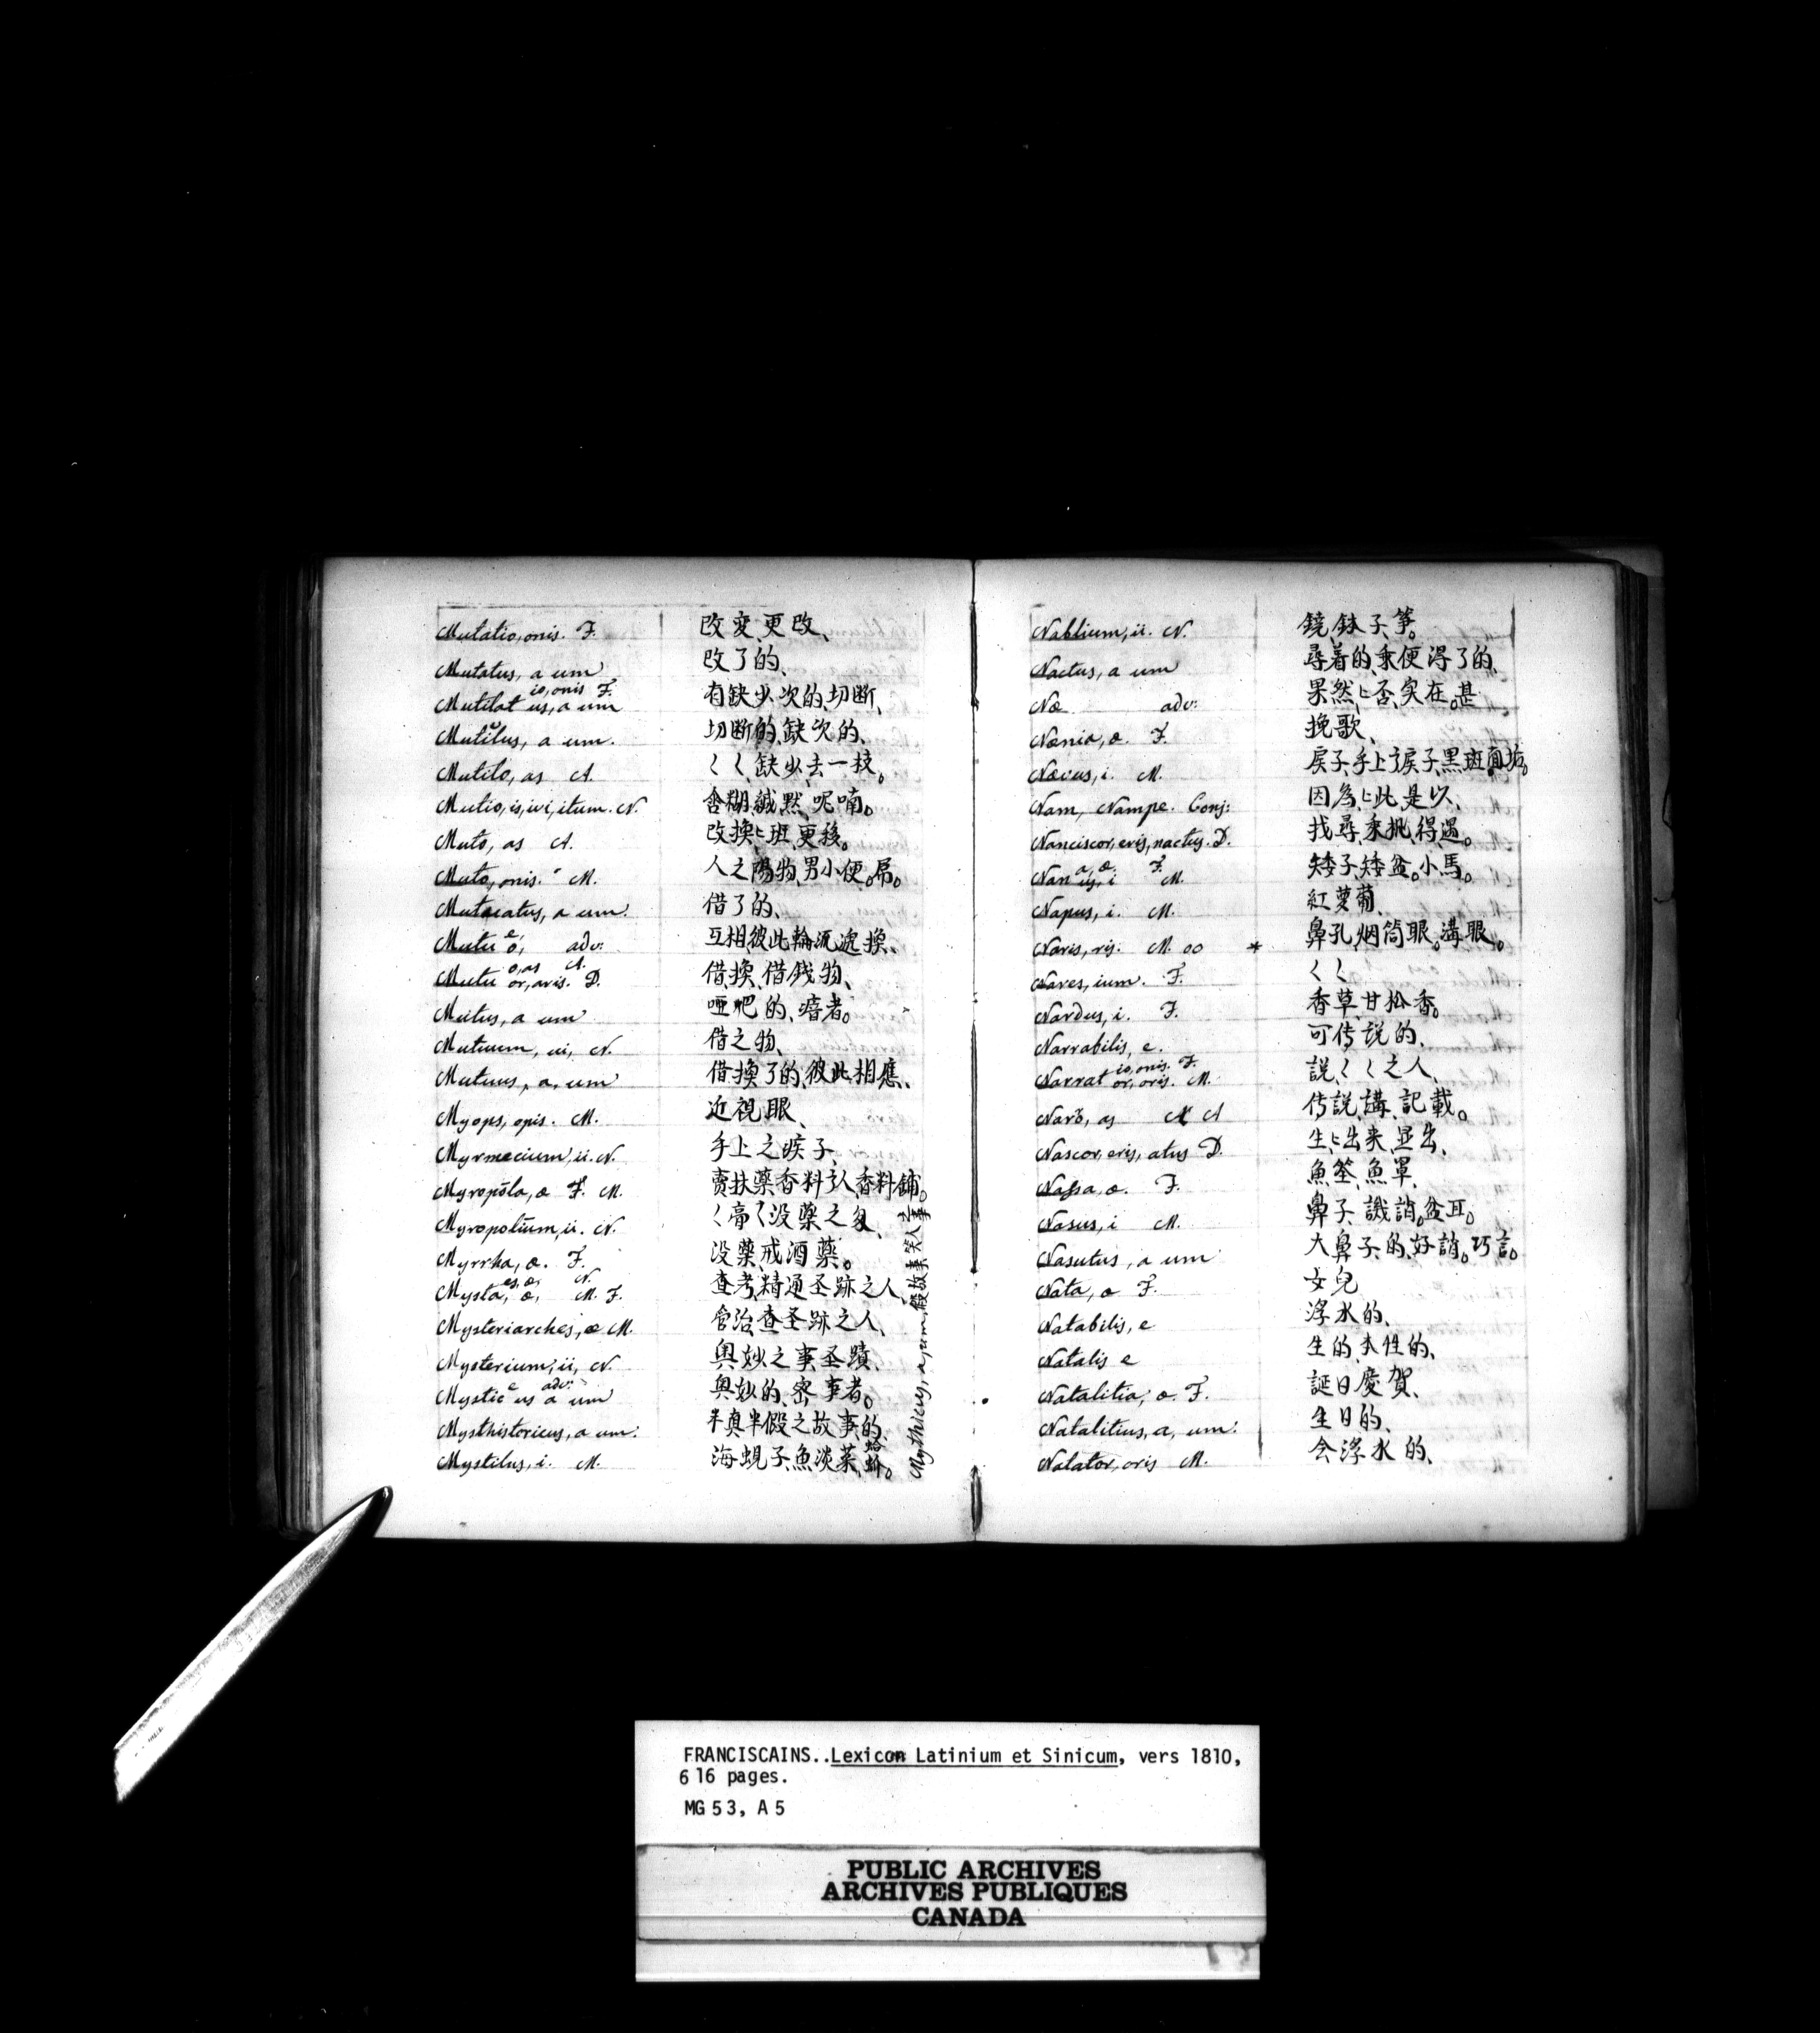 Mutatio, onis. F. 改变、更改、
Mutatus, a um 改了的、
Mutilat io, onis F. us, a um 有缺少次的、切断、
Mutilus, a um. 切断的、缺次的、
Mutilo, as A. く く、缺少、去一枝。
Mutio, is, ivi, itum. N. 含糊、緘默、呢喃。
Muto, as A. 改換、班、更移。
Muto, onis. M. 人之陽物、男小便。屌。
Mutuatus, a um. 借了的、
Mutu e, o, adv: 互相、彼此、輪流、遞換、
Mutu o, as A. or, aris. D. 借、換、借錢物、
Mutus, a um 啞吧的、瘖者。
Mutuum, ui, N. 借之物、
Mutuus, a, um 借換了的、彼此相應、
Myops, opis. M. 近視眼、
Myrmecium, ii. N. 手上之疾子、
Myropola, æ F. M. 賣扶藥香料之人、香料鋪。
Myropolium, ii. N. 没藥之
Myrrha, æ. F. 没藥、戒酒藥。
Mysta, es, æ, æ, N. M. F. 查考、精通圣跡之人、
Mysteriarches, æ M. 管治、查圣跡之人、
Mysterium, ii, N. 奥妙之事、圣蹟、
Mystic e adv: us a um 奥妙的、密事者。
Mysthistoricus, a um. 半真半假之故事的、
Mystilus, i. M. 海蜆子、魚淡菜、蛤蚧。
Mythicus, a, um, 假故事、笑人之事。
Nablium, ii. N. 鐃、鈢子、箏。
Nactus, a um 尋着的、乘便淂了的、
Næ adv: 果然、否、实在。甚
Nænia, æ. F. 挽歌、
Nævus, i. M. 戾子、手上之戾子、黑斑、面垢。
Nam, Nampe. Conj: 因為、此、是以、
Nanciscor, eris, nactus. D. 找尋、乘机、得遇。
Nan a, æ. F. us, i M. 矮子、矮盆。小馬。
Napus, i. M. 紅萝葡、
Naris, ris: M. oo * 鼻孔、烟筒眼。溝眼。
Nares, ium. F. く く
Nardus, i. F. 香草、甘松香。
Narrabilis, e. 可传說的、
Narrat io, onis. F. or, oris. M. 説、く く之人、
Naro, as A 传説、講、記載。
Nascor, eris, atus D. 生、出来、显出、
Nassa, æ. F. 魚筌、魚罩、
Nasus, i M. 鼻子、譏誚。盆耳。
Nasutus, a um 大鼻子的、好誚。巧言。
Nata, æ F. 女兒
Natabilis, e 浮水的、
Natalis e 生的、本性的、
Natalitia, æ. F. 誕日慶賀、
Natalitius, a, um. 生日的、
Natator, oris M. 会浮水的、
FRANCISCAINS..Lexicon Latinium et Sinicum, vers 1810,
616 pages.
MG 53, A 5
PUBLIC ARCHIVES
ARCHIVES PUBLIQUES
CANADA